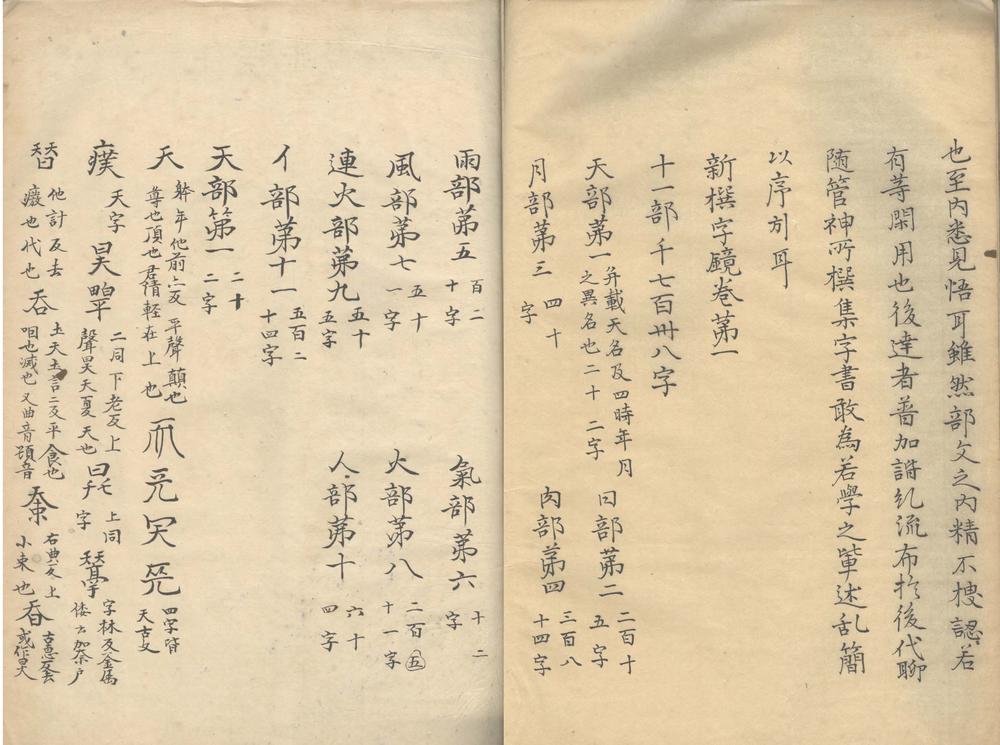 也至内悉見悟耳雖然部文之内精不捜認若
有等閑用也後達者普加諧糺流布於後代聊
随管神所撰集字書敢為若學之軰述乱簡
以序引耳
新撰字鏡巻苐一
十一部千七百卌八字
天部苐一 并載天名及四時年月之異名也二十二字 日部苐二 二百十五字
月部苐三 四十字 肉部苐四 三百八十四字
雨部苐五 百二十字 氣部苐六 十二字
風部苐七 五十一字 火部苐八 二百五十一字
連火部苐九 五十五字 人部苐十 六十四字
亻部苐十一 五百二十四字
天部苐一 二十二字
天 年他前二反平聲顛也尊也頂也君也輕在上也 四字皆天古文
天字 昊 二同下老反上聲昊天夏天也 上同 字 字林反金属倭云加奈戸
替 他計反去癈也代也 吞 土天土言二反平食也咽也滅也又曲音 蚕 右典反上小東也 呑 古恵反去或作昊